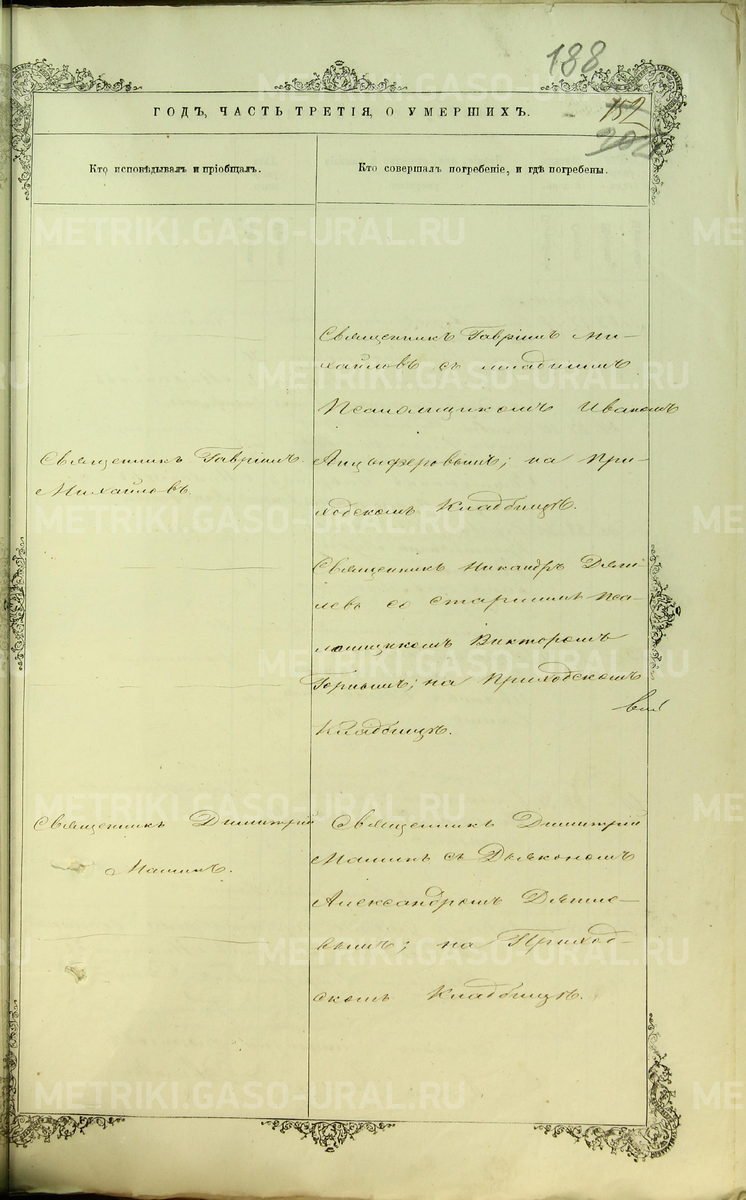 188
ГОДЪ, ЧАСТЬ ТРЕТІЯ, О УМЕРШИХЪ.
152
202
Кто исповѣдывалъ и пріобщалъ.
Кто совершалъ погребеніе, и гдѣ погребены.
METRIKI.GASO-URAL.RU
Священникъ Гавріилъ Ми-
хайловъ съ младшимъ
Псаломщикомъ Иваномъ
Анцыферовымъ; на При-
ходскомъ Кладбищѣ.
Священникъ Гавріилъ
Михайловъ.
Священникъ Никандръ Дяги-
левъ со старшимъ Пса-
ломщикомъ Викторомъ
Горнымъ; на Приходскомъ
Кладбищѣ.
Священникъ Димитрій
Машинъ.
Священникъ Димитрій
Машинъ съ Дьякономъ
Александромъ
на Приход-
скомъ Кладбищѣ.